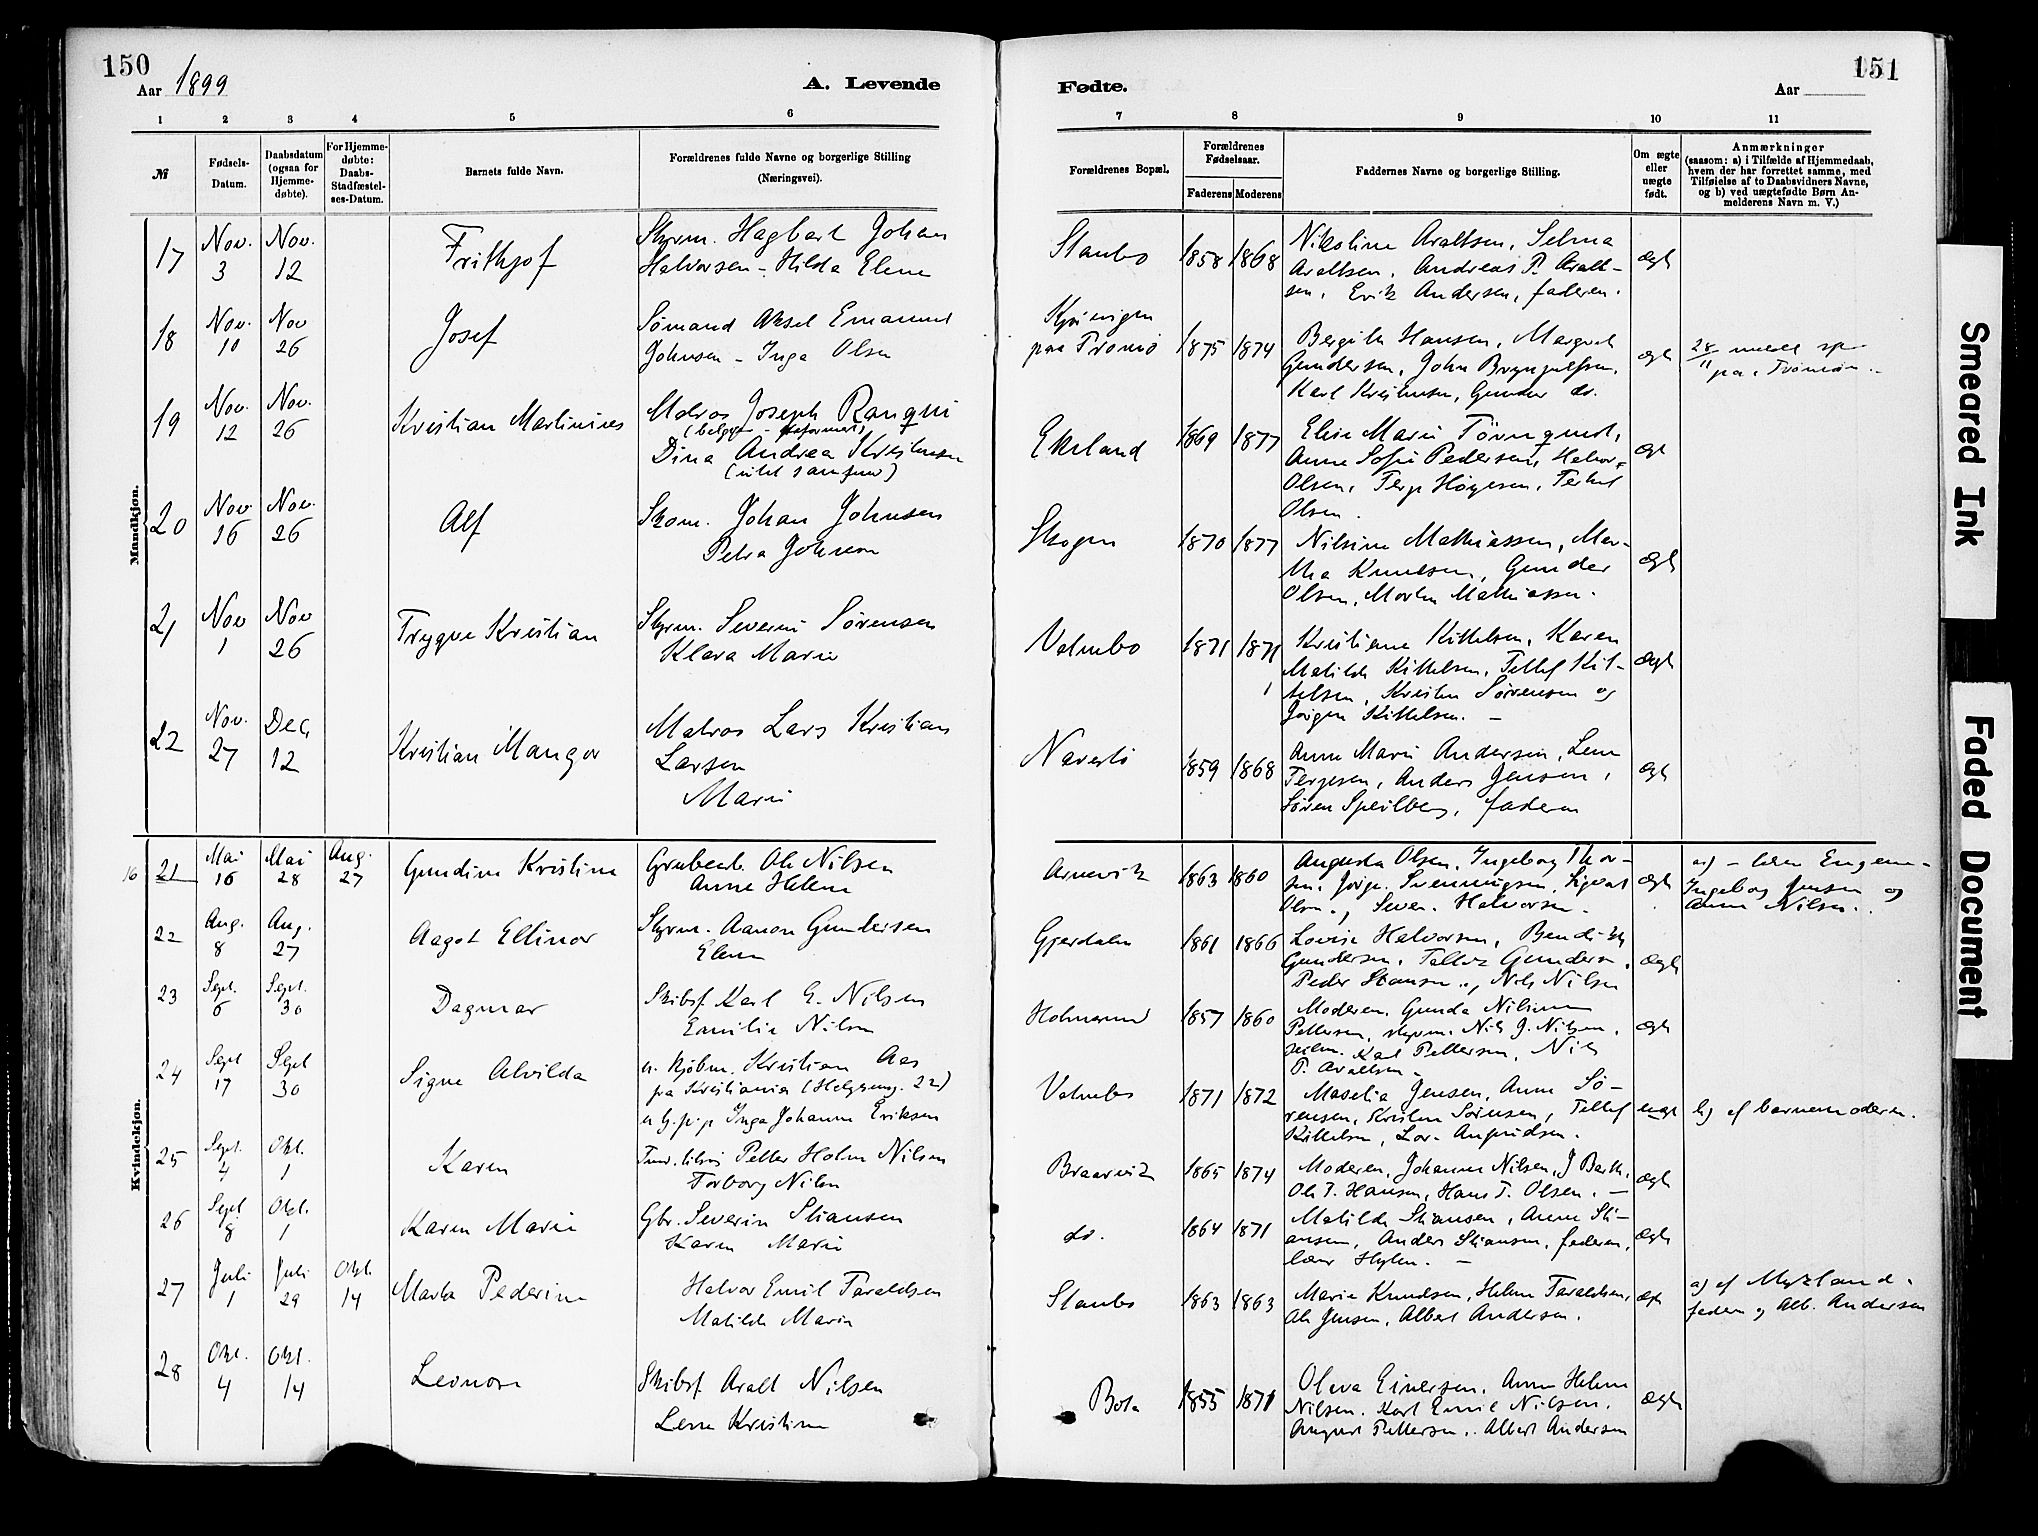 150
Aar 1899
A. Levende
1 2 3 4 5 6
№
Fødsels-
Datum.
Daabsdatum
(ogsaa for
Hjemme-
døbte).
For Hjemme-
døbte:
Daabs-
Stadfæstel-
ses-Datum.
Barnets fulde Navn.
Forældrenes fulde Navne og borgerlige Stilling
(Næringsvei).
Mandkjøn.
17 Nov. 3 Nov. 12 Frithjof
Styrm. Hagbart Johan
Halvorsen - Hilda Elene
18 Nov. 10 Nov 26 Josef
Sømand Aksel Emanuel
Johnsen - Inga Olsen
19 Nov. 12 Nov. 26 Kristian Martinius
Matros Joseph Ranqui
Dina Andrea Kristensen
20 Nov. 16 Nov. 26 Alf
Skom. Johan Johnsen
Petra Johnsen
21 Nov 1 Nov 26 Trygve Kristian
Styrm. Severin Sørensen
Klara Marie
22 Nov. 27 Dec. 12 Kristian Mangor
Matros Lars Kristian
Larsen
Marie
Kvindekjøn.
16 21 Mai 16 Mai 28 Aug. 27 Gundine Kristine
Grubearb. Ole Nilsen
Anne Helene
22 Aug. 8 Aug. 27 Aagot Ellinor
Styrm. Aanon Gundersen
Elene
23 Sept. 6 Sept. 30 Dagmar
Skibsf. Karl G. Nilsen
Emilie Nilsen
24 Sept 17 Sept 30 Signe Alvilda
u. kjøbm. Kristian Aas
fra Kristiania (Helgesensg. 22)
u G. p. p Inga Johanne Eriksen
25 Sept. 4 Okt. 1 Karen
Petter Holm Nilsen
Torborg Nilsen
26 Sept 8 Okt. 1 Karen Marie
Gbr. Severin Stiansen
Karen Marie
27 Juli 1 Juli 29 Okt. 14 Marta Pederine
Halvor Emil Taraldsen
Matilde Marie
28 Okt. 4 Okt. 14 Leonore
Skibsf Aralt Nilsen
Lene Kristine
151
Fødte.
Aar
7 8 9 10 11
Forældrenes Bopæl.
Forældrenes
Fødselsaar.
Faderens Moderens
Faddernes Navne og borgerlige Stilling.
Om ægte
eller
uægte
født.
Anmærkninger
(saasom: a) i Tilfælde af Hjemmedaab,
hvem der har forrettet samme, med
Tilføielse af to Daabsvidners Navne,
og b) ved uægtefødte Børn An-
melderens Navn m. V.)
Staubo 1858 1868
Nikoline Araltsen, Selma
Araltsen, Andreas P. Aralt-
sen, Erik Andersen, faderen.
ægte
paa Tromø 1875 1874
Bergith Hansen, Margret
Gundersen, John Brynjulfsen,
Karl Kristensen, Gunder do.
ægte
28/11 meldt
Ekeland 1869 1877
Elise Marie Törnqvist,
Anne Sofie Pedersen, Halvor
Olsen, Terje Högesen, Terkel
Olsen.
ægte
Skogen 1870 1877
Nilsine Mathiassen, Mar-
tha Knudsen, Gunder
Olsen, Morten Mathiassen.
ægte
Valnebo 1871 1871
Kristiane Kittelsen, Karen
Matilde Kittelsen, Tellef Kit-
telsen, Kristen Sørensen og
Jørgen Kittelsen. -
ægte
Narestø 1859 1868
Anne Marie Andersen, Lene
Terjesen, Anders Jensen,
Søren Speilberg, faderen
ægte
Arnevik 1863 1860
Augusta Olsen, Ingeborg Thor-
sen, Jørg. Svenningsen, Sigvart
Olsen., Sever. Halvorsen.
ægte
Ingeborg Jensen og
Anne Nilsen.
Gjerdalen 1861 1866
Lovise Halvorsen, Bendikte
Gundersen, Tellef Gundersen,
Peder Hansen, Nils Nilsen
ægte
Holmesund 1857 1860
Moderen, Gunda Nilsine
Pettersen, styrm. Nils G. Nilsen,
seilm. Karl Pettersen, Nils
P. Araltsen -
ægte
Valnebo 1871 1872
Maselia Jensen, Anne Sø-
rensen, Kristen Sørensen, Tellef
Kittelsen,
uægte
b) af barnemoderen.
Braarvik 1865 1874
Moderen, Johanne Nilsen, J Barth,
Ole T. Hansen, Hans T. Olsen. -
ægte
do. 1864 1871
Matilde Stiansen, Anne Sti-
ansen, Anders Stiansen, faderen,
ægte
Staubo 1863 1863
Marie Knudsen, Helene Taraldsen,
Ole Jensen, Albert Andersen.
ægte
a) af Mykland.
faderen og Alb. Andersen
Bota 1855 1871
Oleva Einersen, Anne Helene
Nilsen, Karl Emil Nilsen,
August Pettersen, Albert Andersen
ægte
Smeared Ink
Faded Document